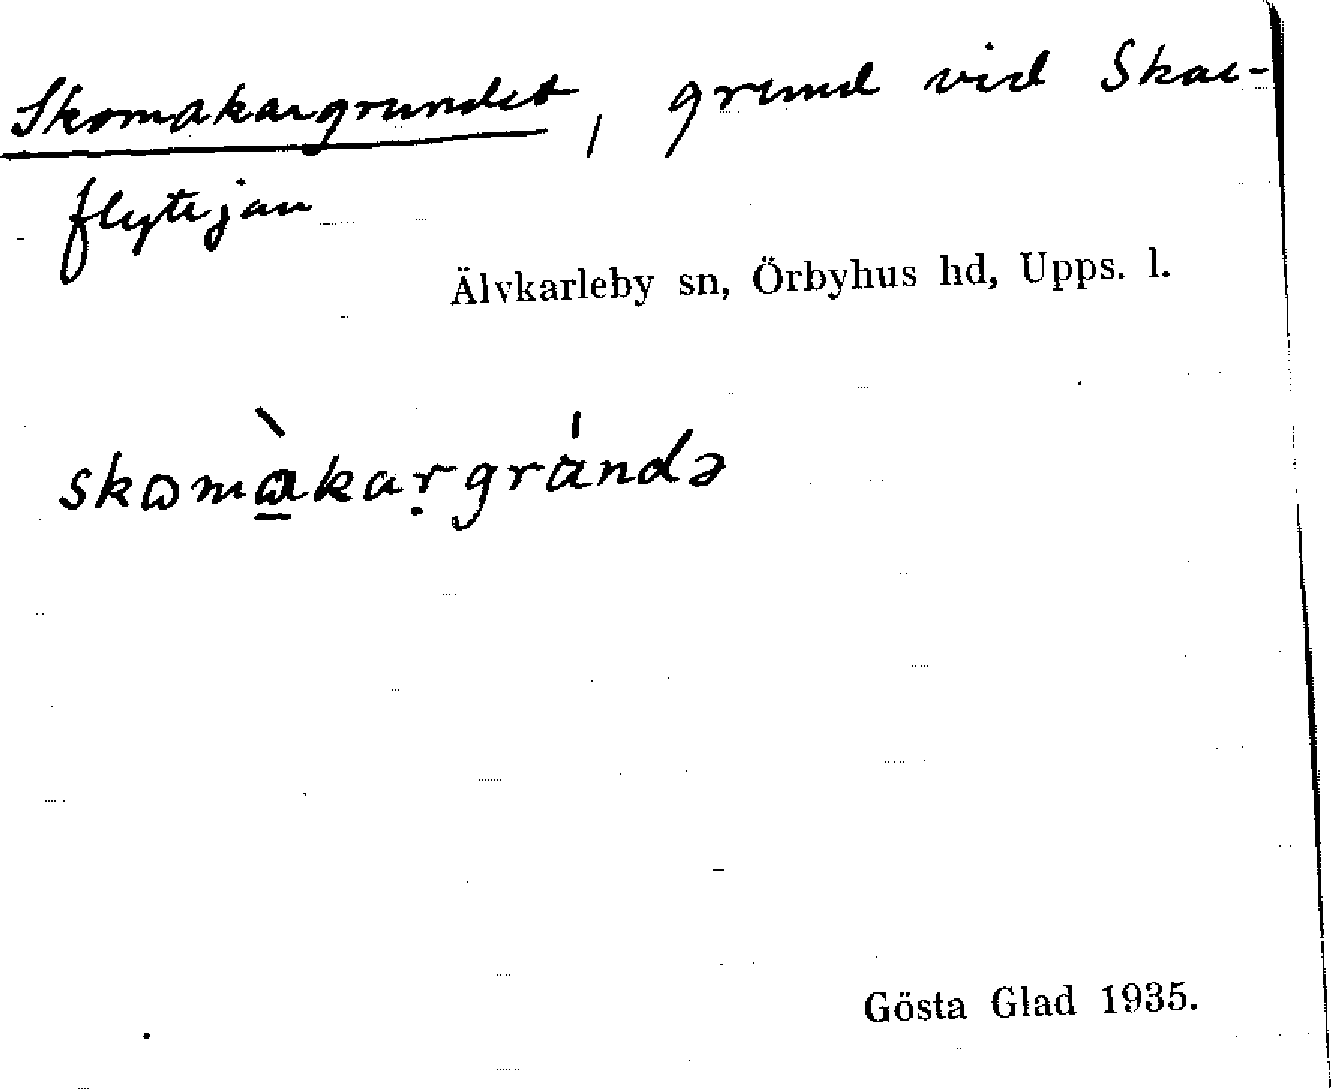 Skomakargrundet, grund vid Skae-
flytejan
Älvkarleby sn, Örbyhus hd, Upps. l.
skωmàkaṛgrándə
Gösta Glad 1935.